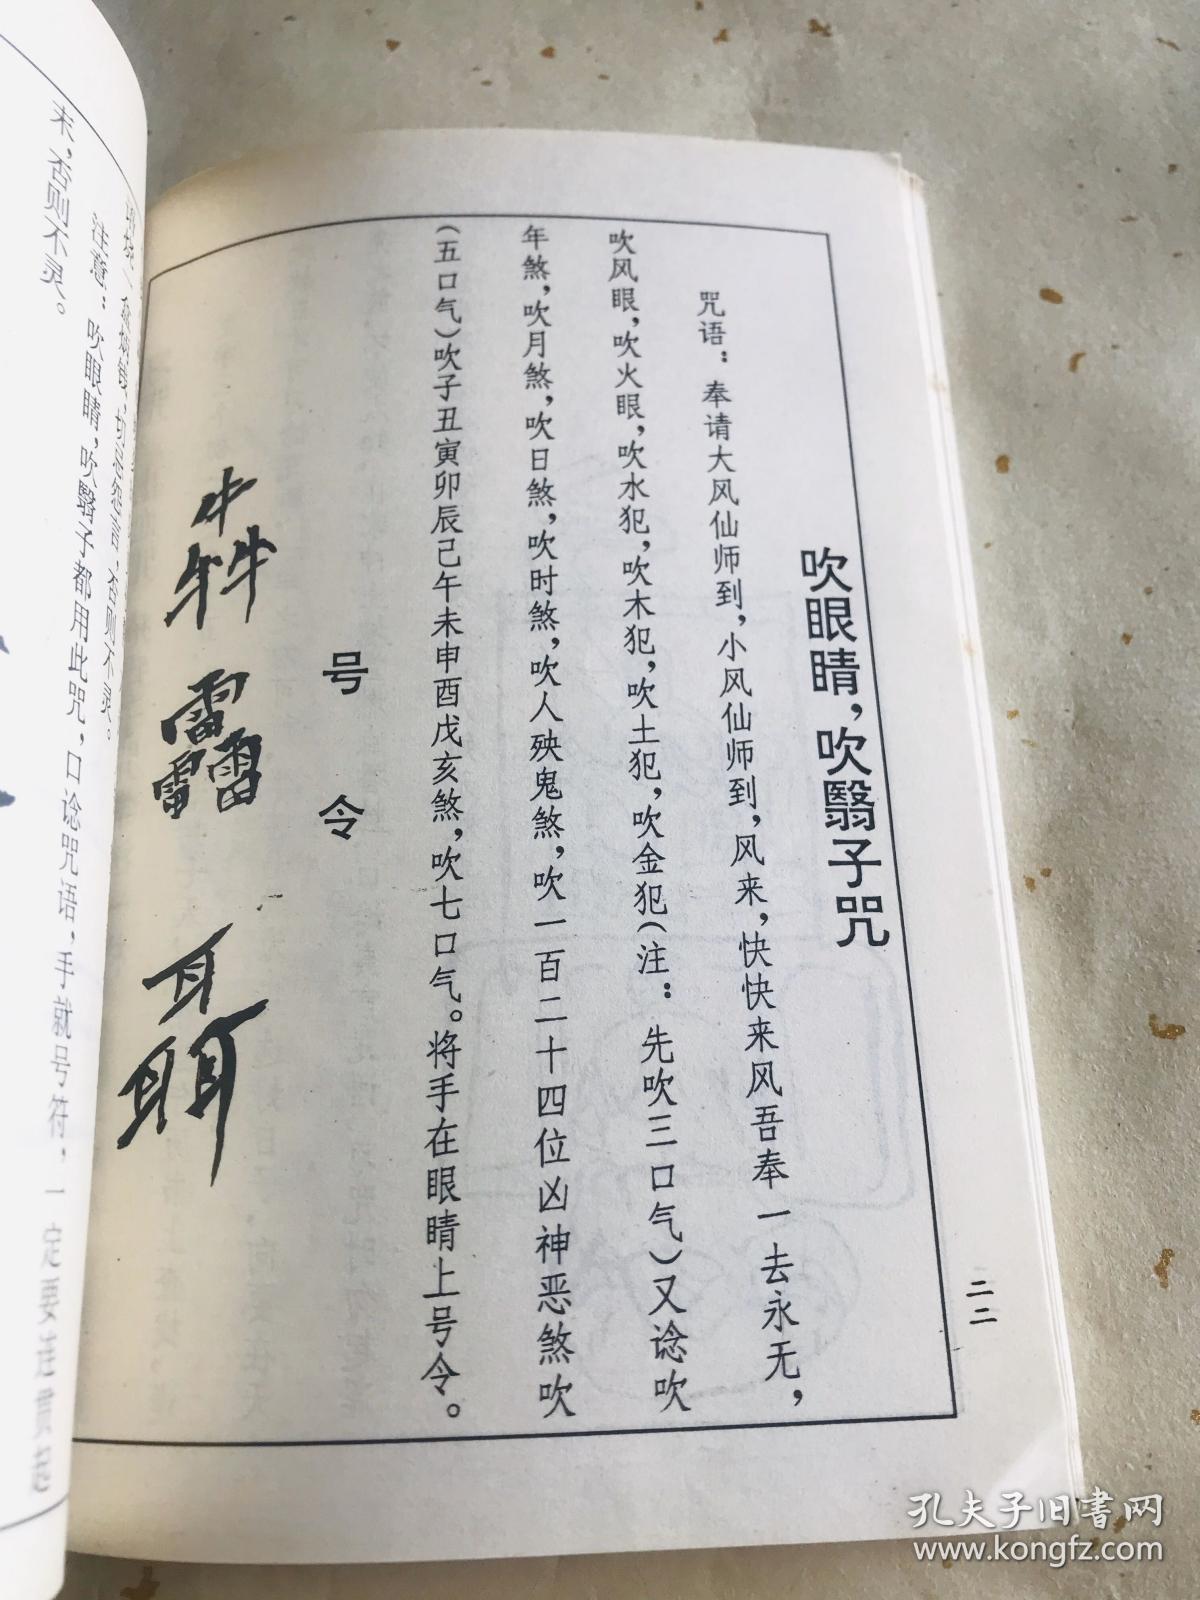 吹眼睛，吹翳子咒
咒语：奉请大风仙师到，小风仙师到，风来，快快来风吾奉一去永无，
吹风眼，吹火眼，吹水犯，吹木犯，吹土犯，吹金犯（注：先吹三口气）又谂吹
年煞，吹月煞，吹日煞，吹时煞，吹人殃鬼煞，吹一百二十四位凶神恶煞吹
（五口气）吹子丑寅卯辰己午未申酉戊亥煞，吹七口气。将手在眼睛上号令。
号令
犇
靐
聶
二二
注意：吹眼睛，吹翳子都用此咒，口谂咒语，手就号符，一定要连贯起
末，否则不灵。
切忌怨言，否则不灵。
孔夫子旧书网
www.kongfz.com